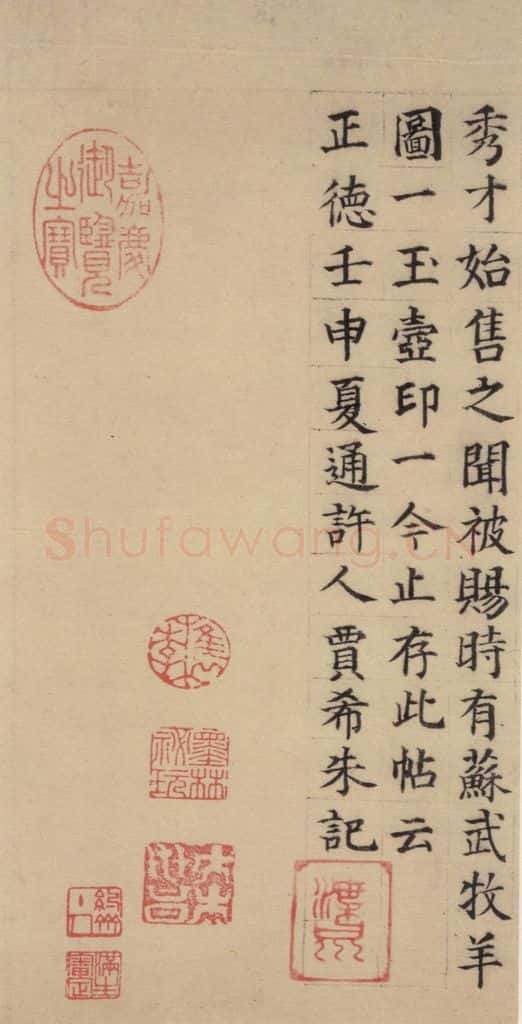 秀才始售之聞被賜時有蘇武牧羊
圖一玉壺印一今止存此帖云
正德壬申夏通許人賈希朱記
嘉慶
御覽
之寶
墨林
祕玩
Shufawang.CN